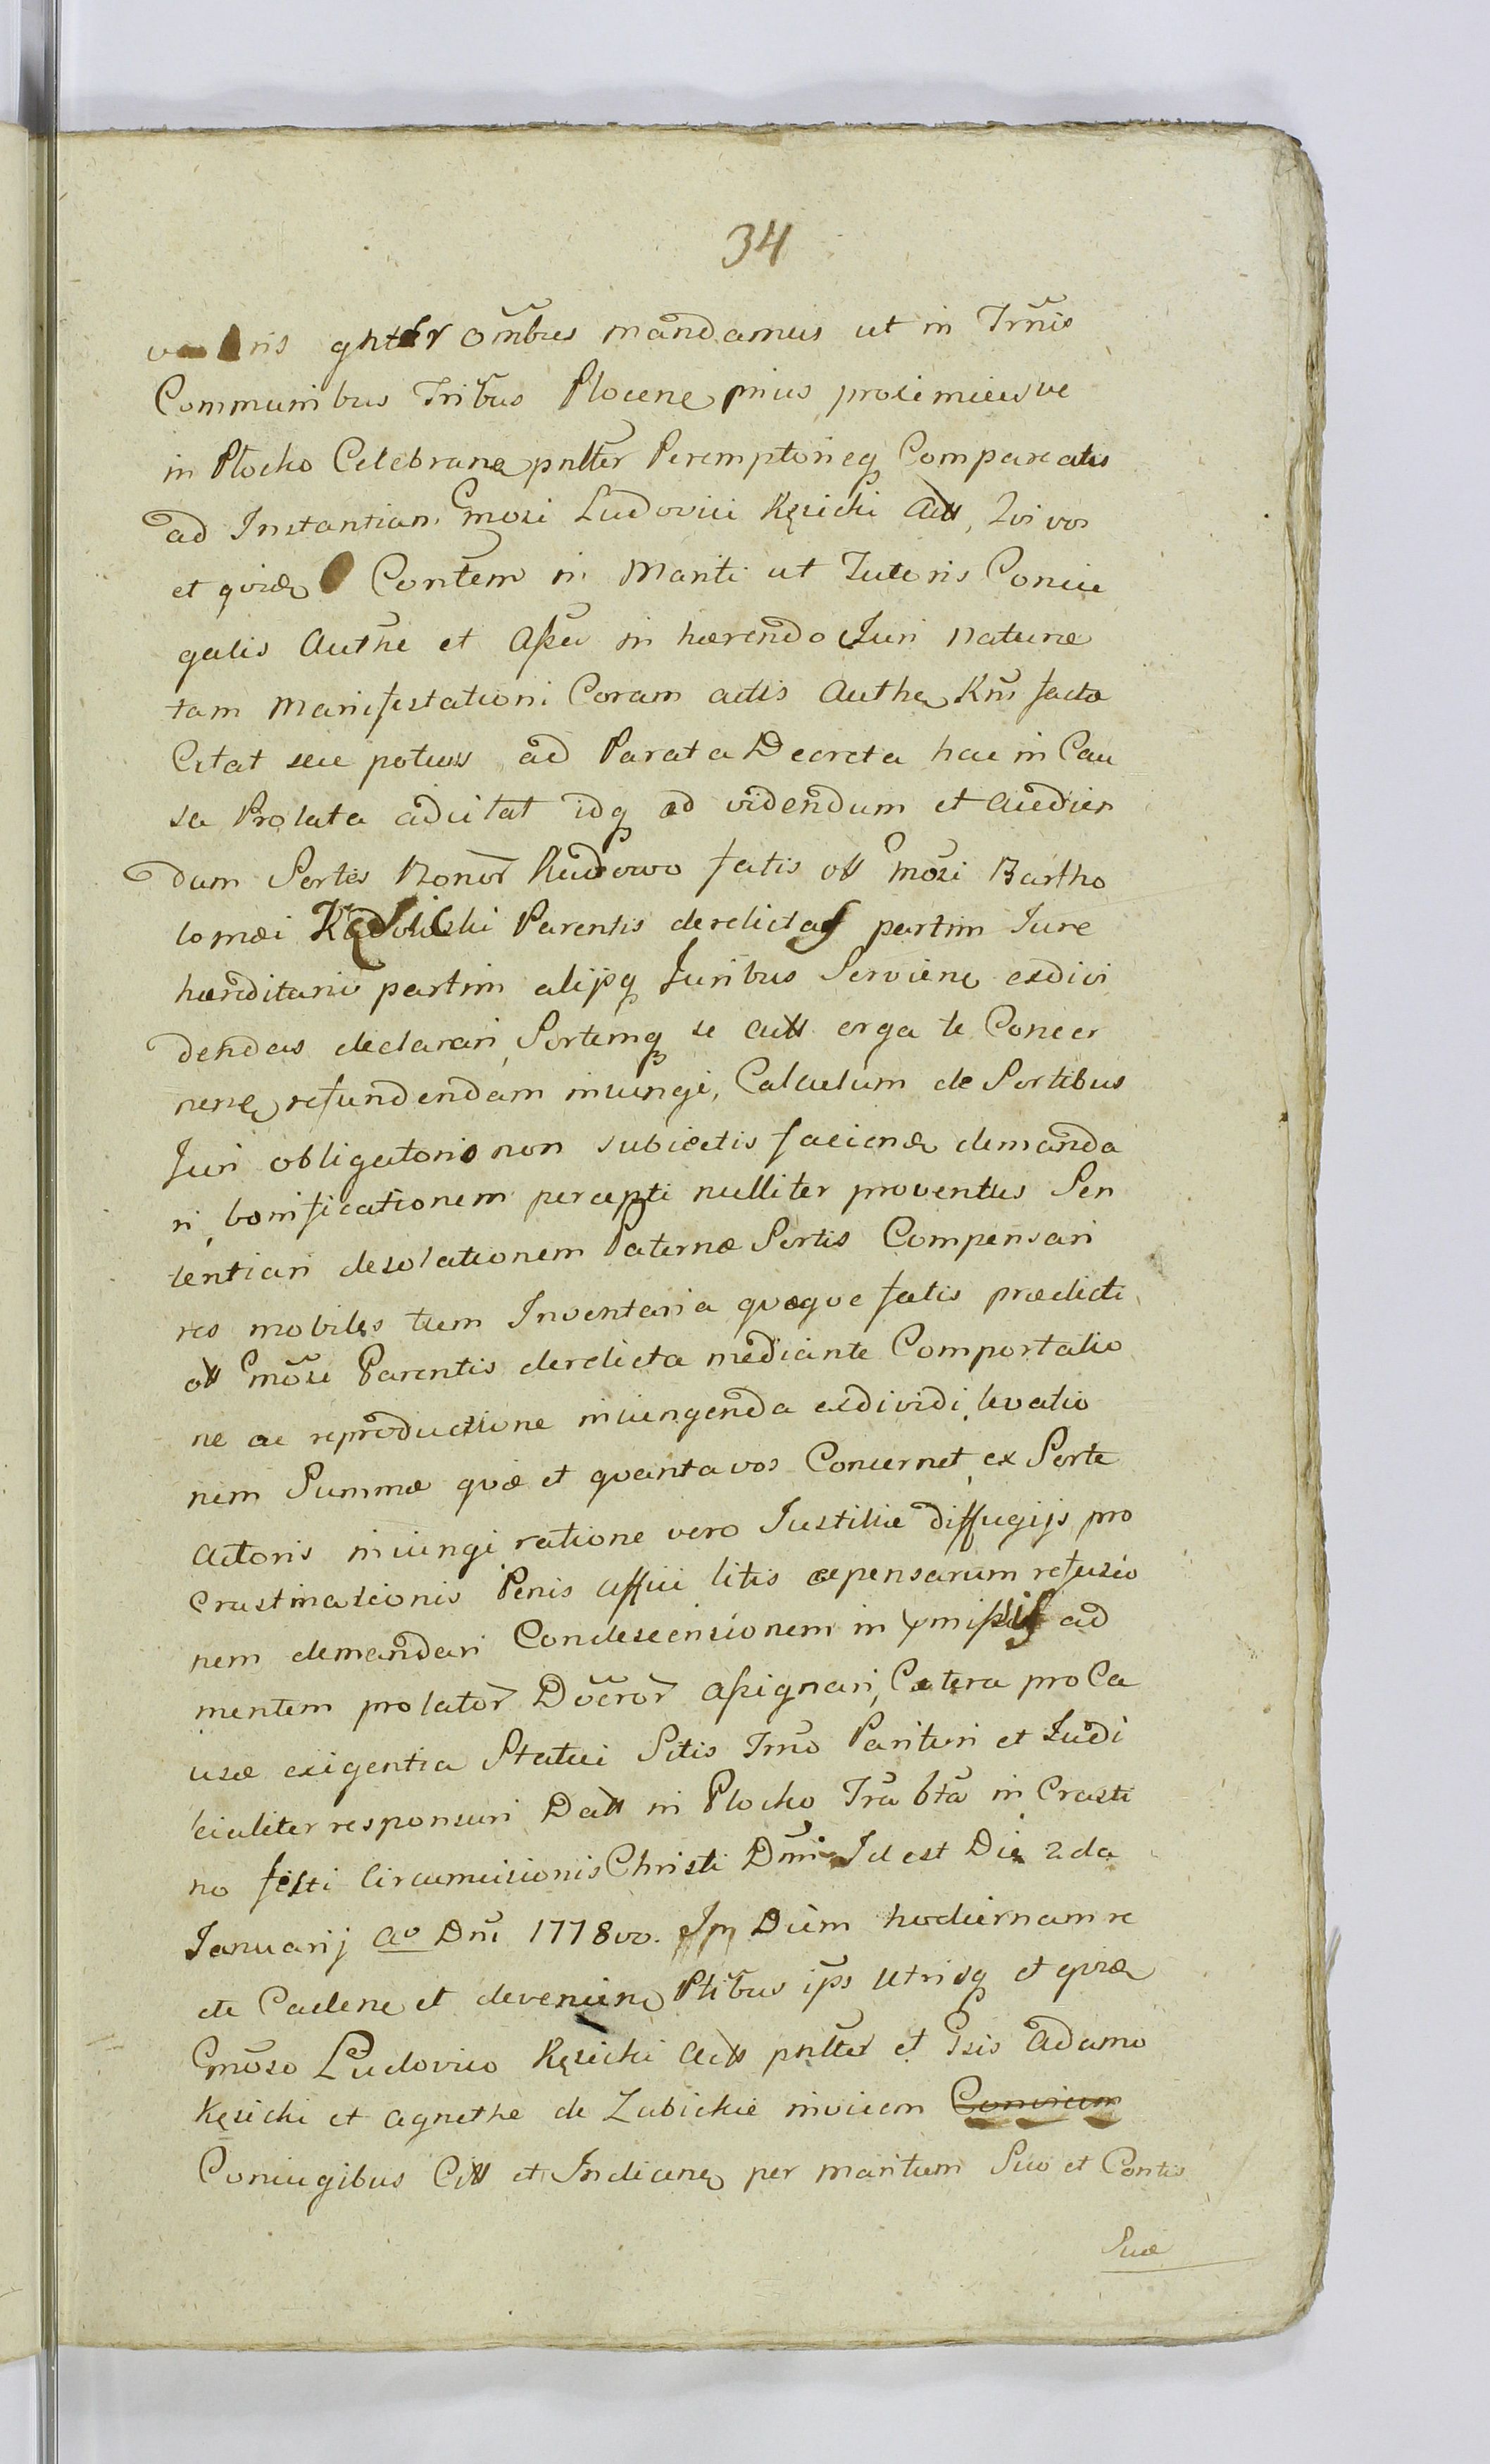 34
ghtėr om̃bus mandamus ut in Trm̃is
Communibus Tribus Plocen prius proximieusve
in Plocko Celebran pnltėr Peremptorieq Compareatis
ad Instantiam Gmosi Ludovici Kęsicki Act, Qui vos
et qvid Contem in Mariti ut Tutoris Coniu
galis Authe et Assa in hærendo Juri naturæ
tam Manifestationi Coram actis Authen Km̃ facta
Citat seu potius ad Parata Decreta hac in Cau
sa Prolata adcitat idq ad videndum et audien
dum Sortes Bonor̃ Rudowo fatis oll Gmosi Bartho
lomæi Kęsicki Parentis derelictas partim Jure
hæreditario partim alijsq Juribus Servien exdivi
dendas declarari, Sortemq se act erga te Concer
nen refundendam iniungi, Calculum de Sortibus
Juri obligatorio non subiectis facien demanda
ri, bonificationem percepti nulliter proventus Sen
tentiari desolationem Paternæ Sortis Compensari
res mobiles tum Inventaria qvæqve fatis prædicti
oll Gmosi Parentis derelicta mediante Comportatio
ne ac reproductione iniungenda exdividi, levatio
nem Summæ qvæ et qvanta vos Concernet, ex Sorte
Actoris iniungi ratione vero Justitiæ diffugijs pro
crastinationis Penis affici litis expensarum refusio
nem demandari Condescensionem in pmissis ad
mentem prolator̃ Dõcror̃ assignari, Cætera pro Ca
usæ exigentia Statui Sitis Trm̃o Parituri et Judi
cialiter responsuri Datt in Plocko Tr̃a bt̃a in Crasti
no festi Circumcisionis Christi Dm̃i Id est Die 2da
Januarij Ao Dm̃i 1778vo. In Diem hodiernam re
cte Caden et devenien Pt̃ibus ip̃s Utrisq et qvid
Gmoso Ludovico Kęsicki Act pnlter et Gsis Adamo
Kęsicki et Agnethe de Zubickie invicem Convicem
Coniugibus Citt et Indicen per maritum Suo et Contis
Suæ